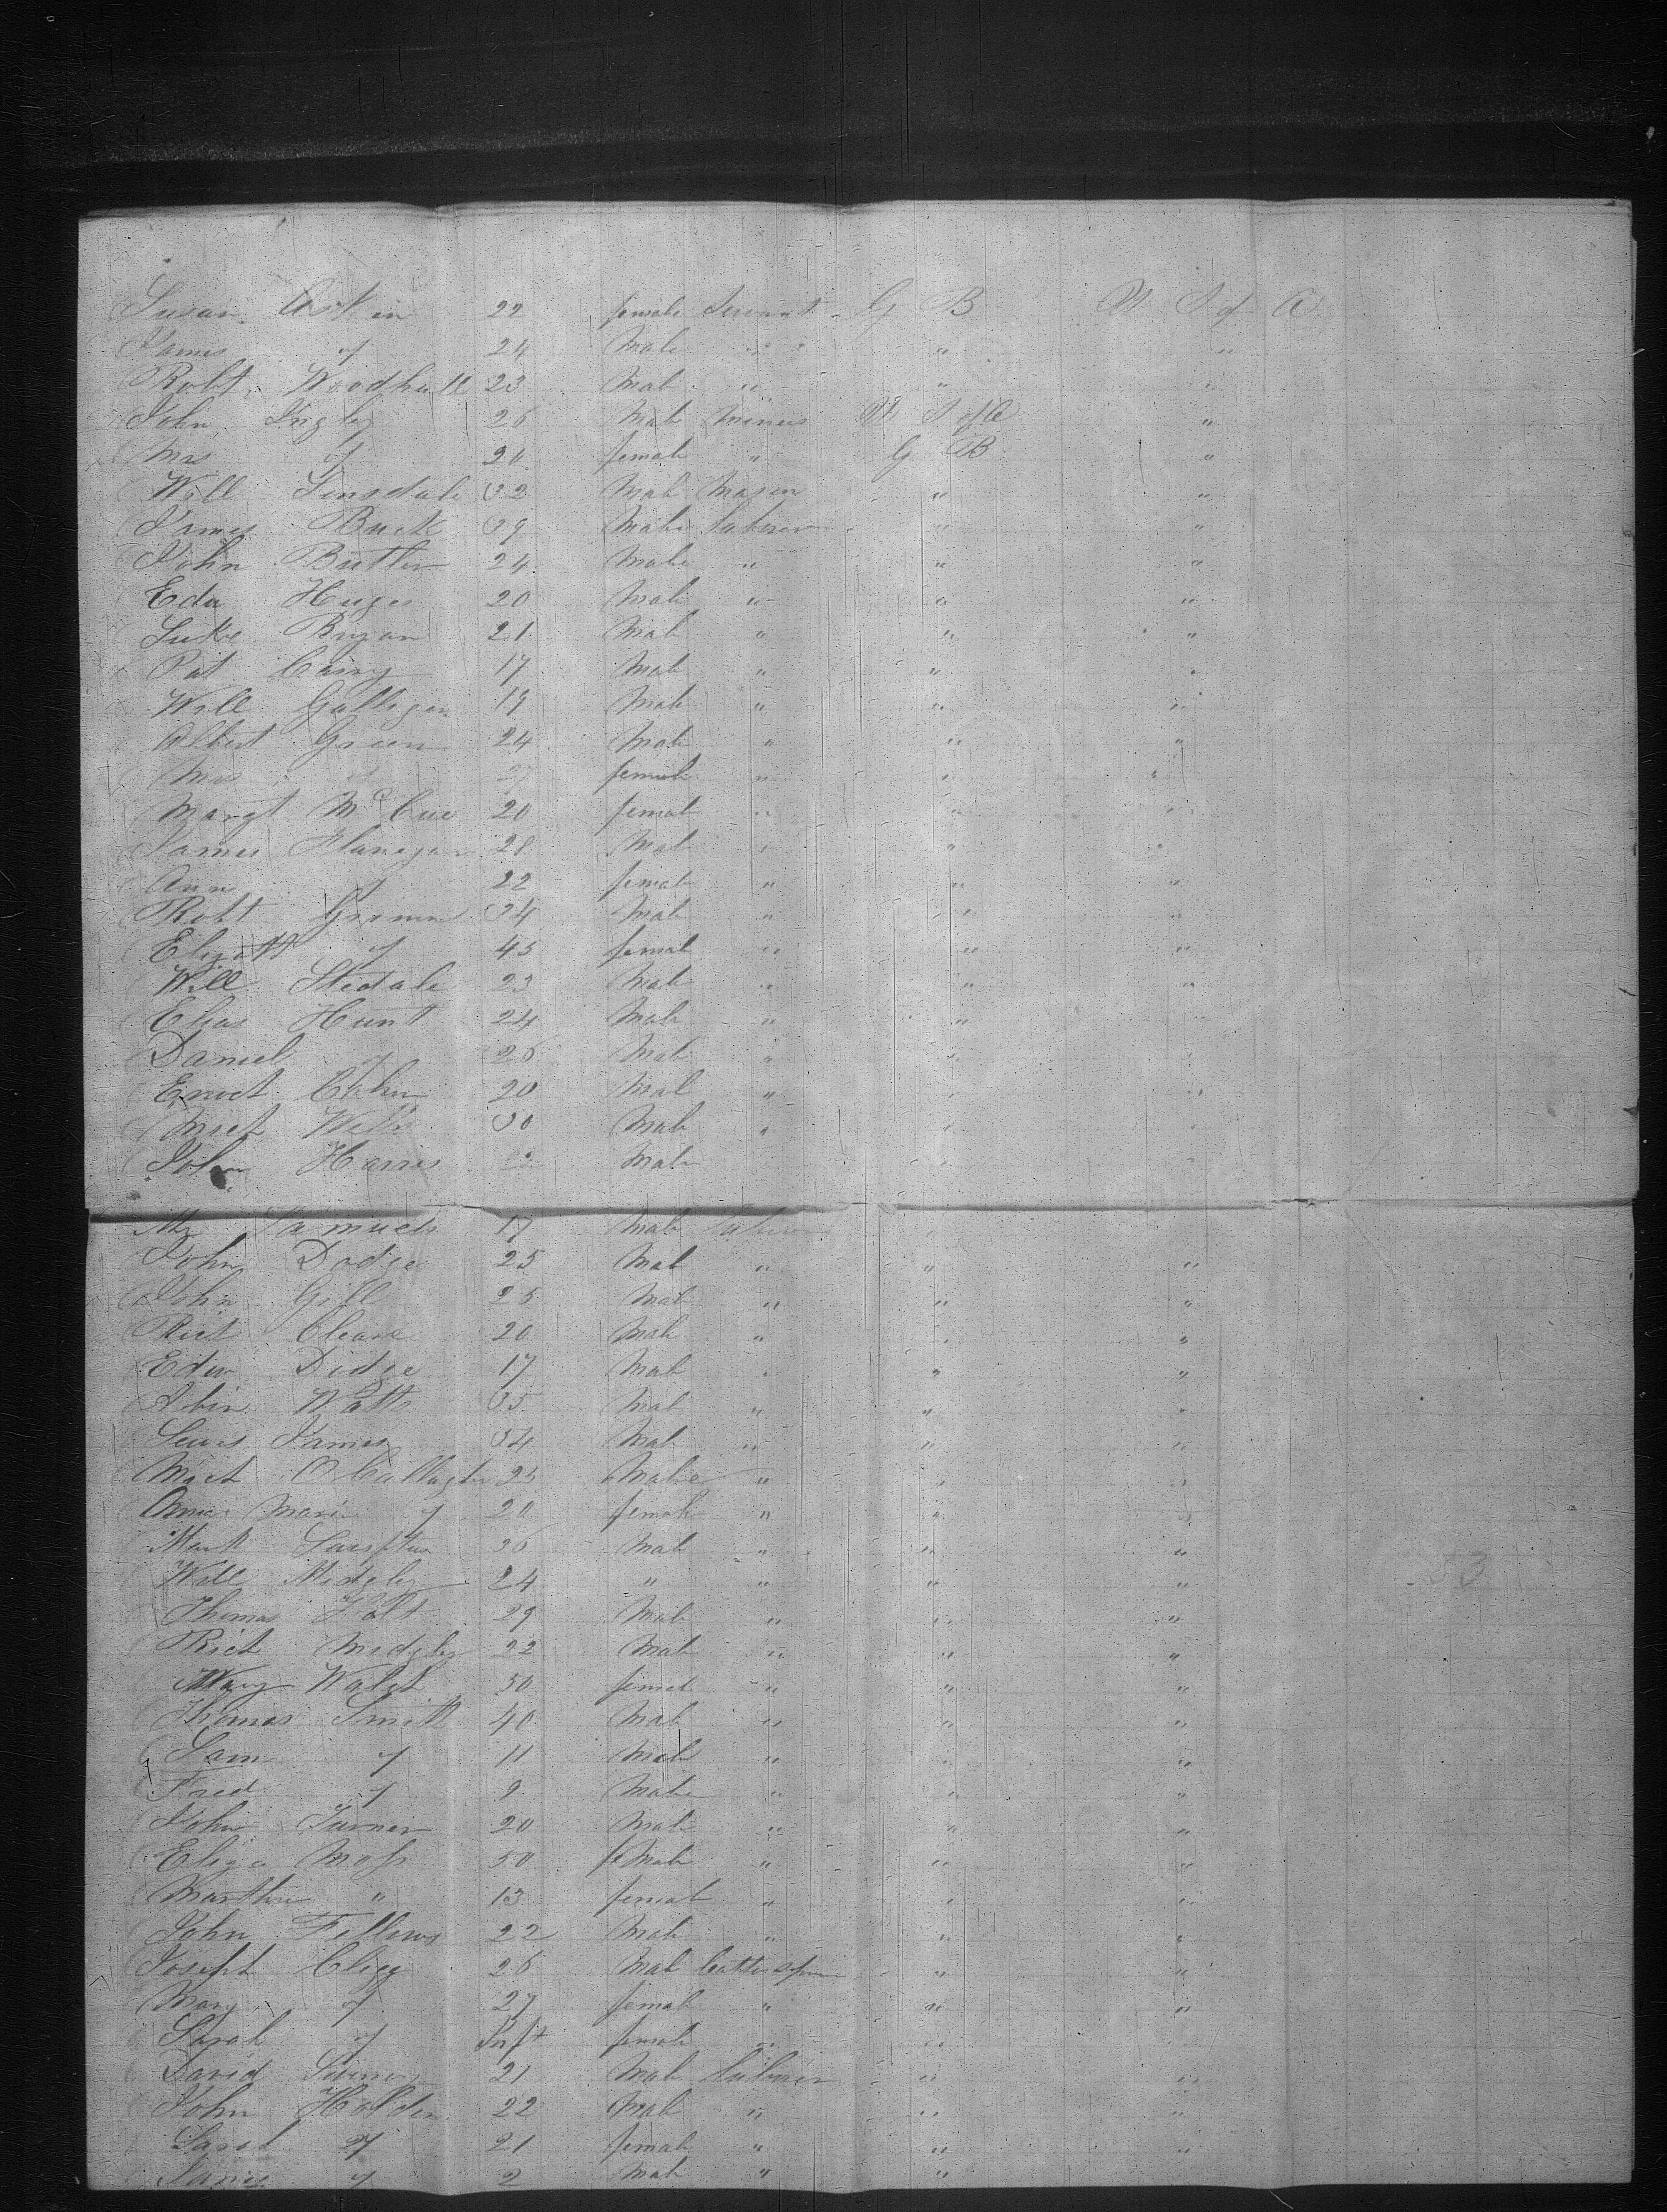 Susan Askin 22 female Servant G B U S of A
James " 24 Male " " "
Robt Woodhull 23 Mal " " "
John Ingley 26 Mal Miners U S of A "
Mrs " 20 female " G B "
Will Linsdale 32 Mal Mason " "
James Buck 39 Male Laborer " "
John Butler 24 Male " " "
Edw Huges 20 Mal " " "
Luke Bryan 21 Mal " " "
Pat Casey 17 Mal " " "
Will Galligan 19 Mal " " "
Albert Green 24 Mal " " "
Mrs " 27 female " " "
Margt McCue 20 femal " " "
James Flanagan 28 Mal " " "
Ann " 22 femal " " "
Robt 34 Mal " " "
Elizath " 45 femal " " "
Will 23 Mal " " "
Elias Hunt 24 Mal " " "
Daniel " 26 Mal " " "
20 Mal " " "
Wells 30 Mal " " "
John Harris Male " "
Samuels 17 Mal Laborer "
John Dodge 25 Mal " " "
John Gill 25 Mal " " "
Rich 20 Mal " " "
Edw Didge 17 Mal " " "
Watts 35 Mal " " "
Lewis James 34 Mal " " "
Mich O Callagher 25 Male " " "
Anna Maria " 20 female " " "
Mark 36 Mal " " "
Will Midgley 24 " " " "
Thomas Holt 29 Mal " " "
Rich Midgley 22 Mal " " "
Mary Walsh 50 femal " " "
Thomas Smith 40 Mal " " "
Sam " 11 Mal " " "
Fred " 9 Male " " "
John Turner 20 Mal " " "
Eliza Moss 50 feMale " " "
Martha " 13 femal " " "
John Fellows 22 Mal " " "
Joseph Clegg 26 Mal " "
Mary " 27 femal " " "
Sarah " Inft female " " "
David 21 Mal Laborer " "
John Holden 22 Mal " " "
Sarah " 21 femal " " "
James " 2 Mal " "